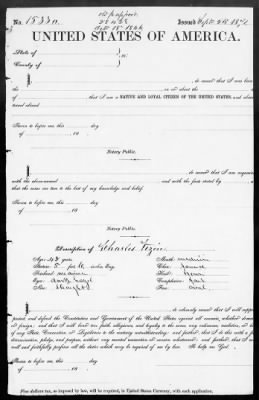 old passport
No. 15330. Issued Sept 28 1872
22428
Sept 18 1866
UNITED STATES OF AMERICA.
State of
County of
ss:
I, do swear that I was born
in on or about the
of , that I am a NATIVE AND LOYAL CITIZEN OF THE UNITED STATES, and about
travel abroad
Sworn to before me, this day
of 18
Notary Public.
I, do swear that I am acquainted
with the above-named and with the facts stated by
that the same are true to the best of my knowledge and belief.
Sworn to before me, this day
of 18
Notary Public.
Description of Charles
Age: Mouth: medium
Stature: 5 feet inches Eng. Chin: round
Forehead: medium Hair: brown
Eyes: dark hazel Complexion: fair
Nose: straight Face: oval
I, do solemnly swear that I will support,
protect, and defend the Constitution and Government of the United States against all enemies, whether domestic
or foreign; and that I will bear true faith, allegiance, and loyalty to the same, any ordinance, resolution, or law
of any State, Convention, or Legislature to the contrary notwithstanding; and further, that I do this with a full
determination, pledge, and purpose, without any mental reservation or evasion whatsoever; and further, that I will
well and faithfully perform all the duties which may be required of me by law. So help me God.
Sworn to before me, this day
of 18
Five dollars tax, as imposed by law, will be required, in United States Currency, with each application.